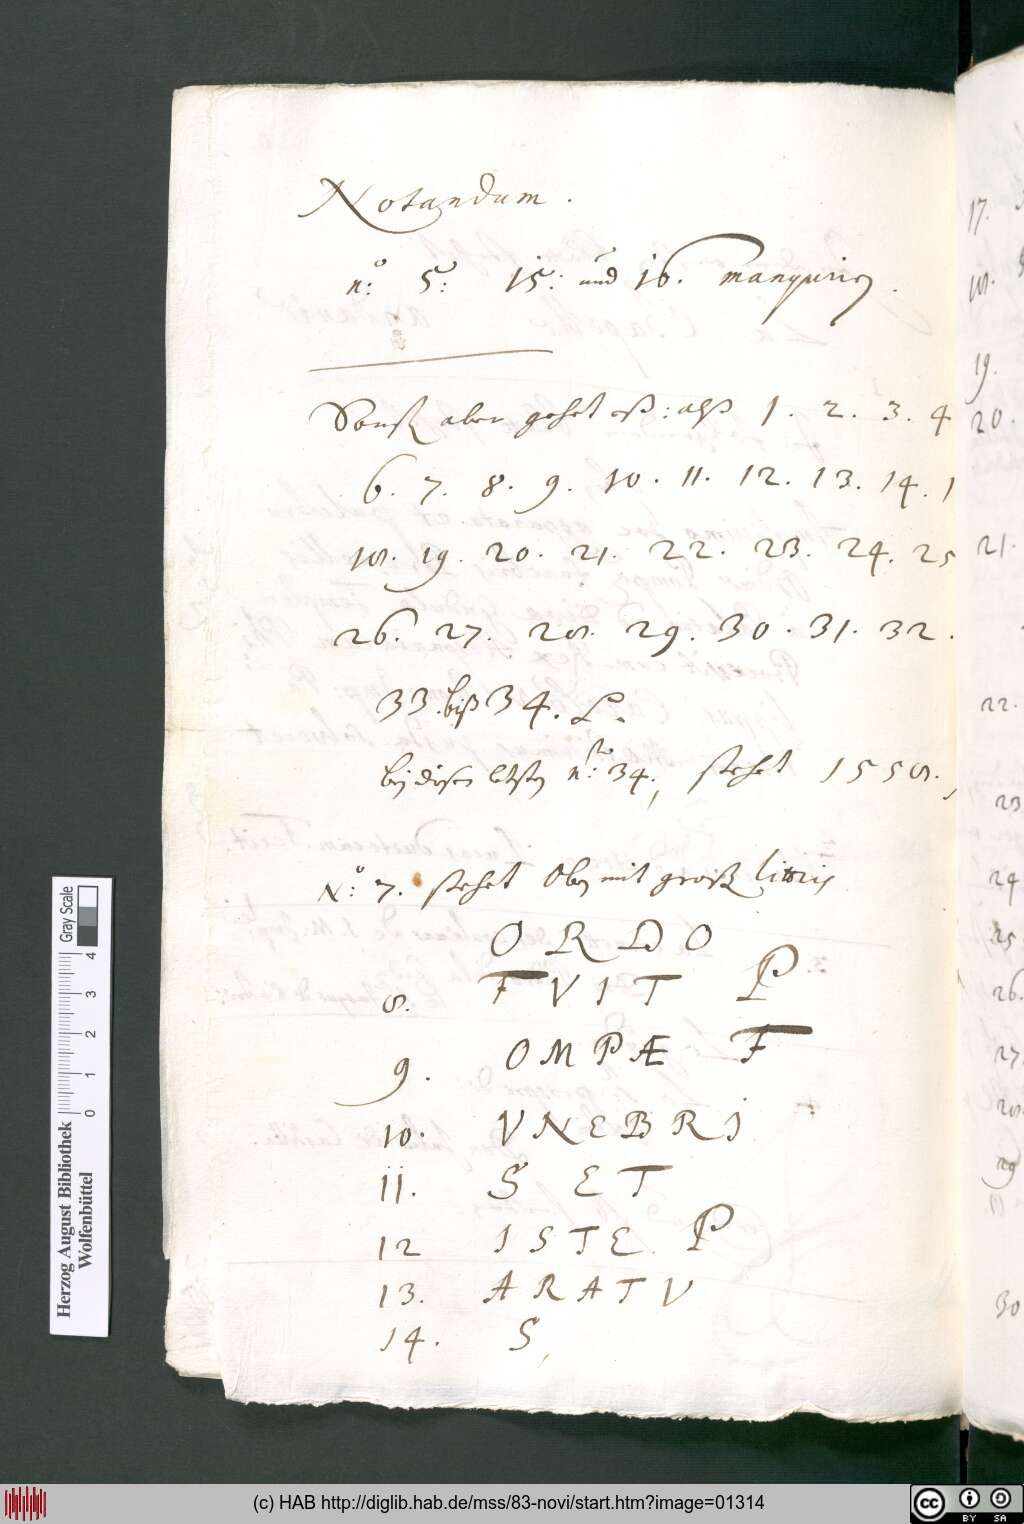 Notandum.
nº: 5: 15: und 16. manquiren.
Sonst aber gehet eß: alß 1. 2. 3. 4
6. 7. 8. 9. 10. 11. 12. 13. 14. 1
18. 19. 20. 21. 22. 23. 24. 25
26. 27. 28. 29. 30. 31. 32.
33. biß 34.
bey diesen letsten nº: 34, stehet 1558.,
Nº: 7. stehet Oben mit groß litteris
ORDO
8. FVIT P
9. OMPÆ F
10. VNEBRI
11. S ET
12 ISTE P
13. ARATV
14. S,
17.
18.
19.
20.
21.
22.
23
24
25
26.
27.
28.
29
30
Herzog August Bibliothek
Wolfenbüttel
0 1 2 3 4
Gray Scale
(c) HAB http://diglib.hab.de/mss/83-novi/start.htm?image=01314
cc BY SA